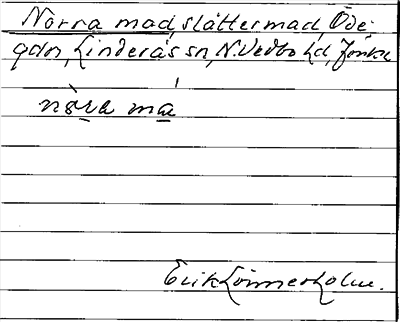 Norra mad, slåttermad, Öde-
gdn, Linderås sn, N. Vedbo hd, Jönk.
nòra má
Erik Lönnerholm.